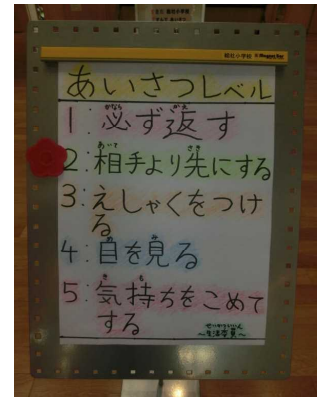 あいさつレベル
1：必ず返す
2：相手より先にする
3：えしゃくをつけ
る
4：目を見る
5：気持ちをこめて
する
～生活委員～